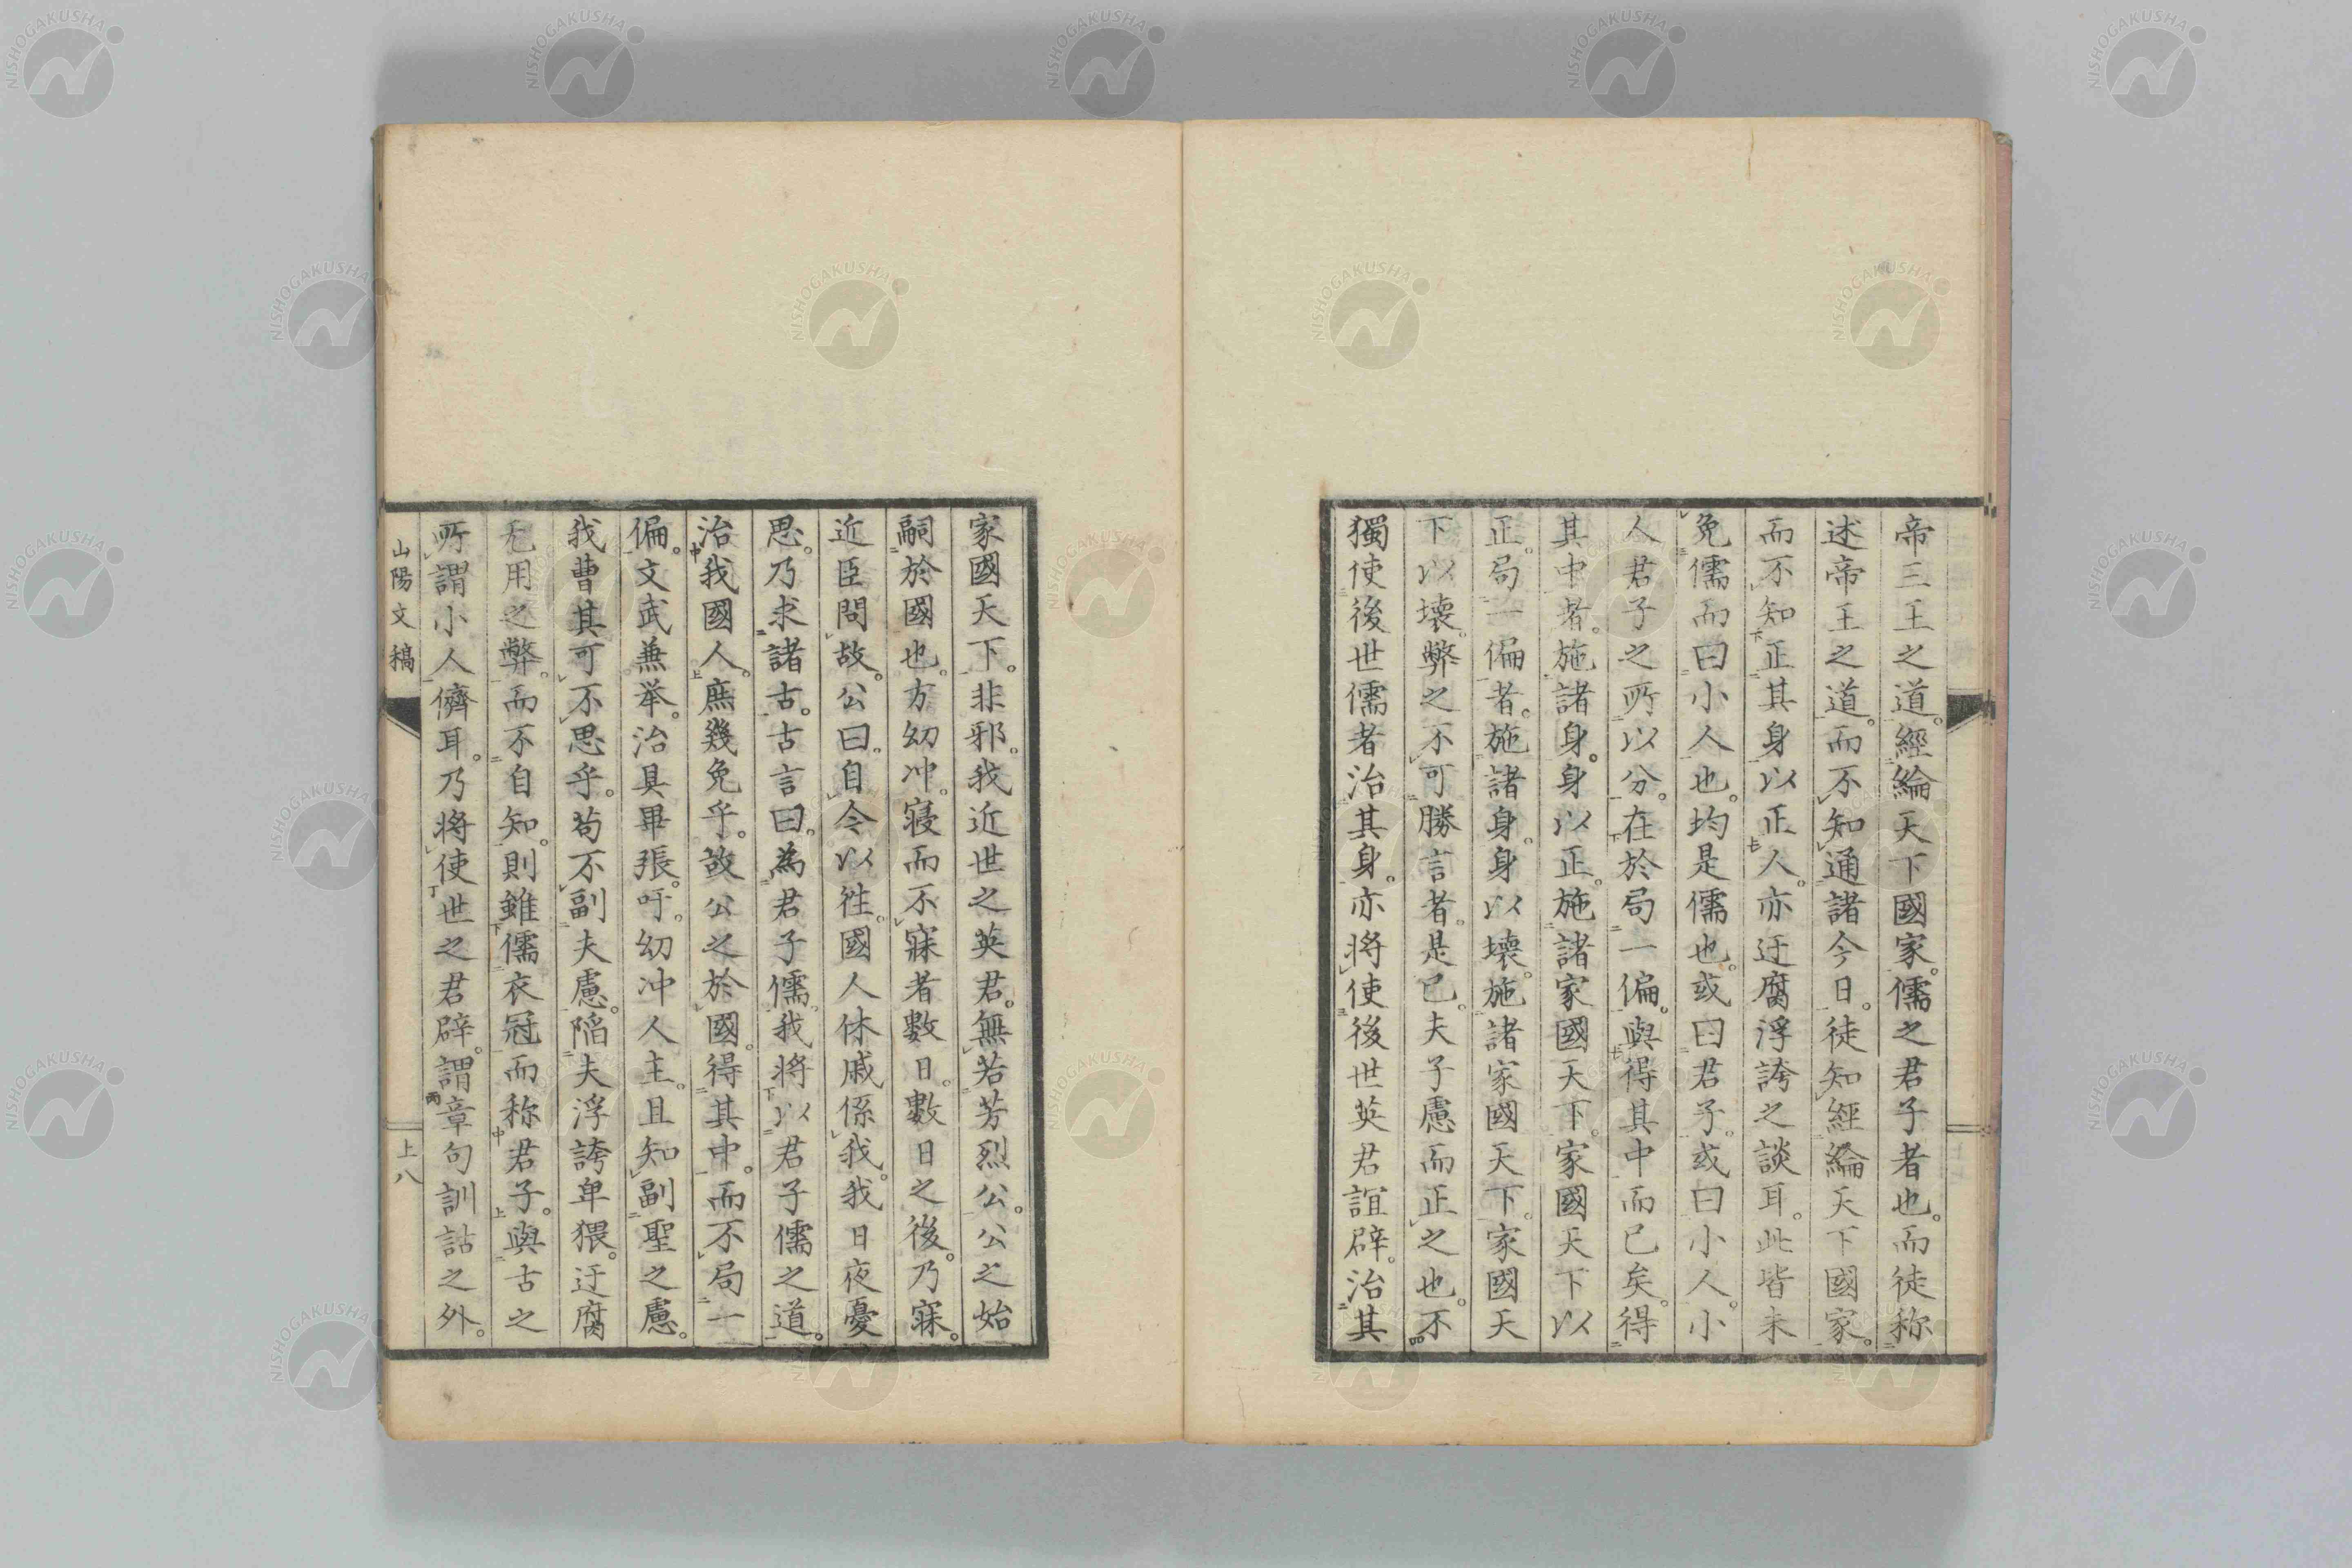 帝三王之道。經綸天下國家。儒之君子者也。而徒称
述帝王之道。而不知通諸今日。徒知經綸天下國家。
而不知正其身以正人。亦迂腐浮誇之談耳。此皆未
免儒而曰小人也。均是儒也。或曰君子。或曰小人。小
人君子之所以分。在於局一偏。與得其中而已矣。得
其中者。施諸身。身以正。施諸家國天下。家國天下以
正。局一偏者。施諸身。身以壞。施諸家國天下。家國天
下以壞。弊之不可勝言者。是已。夫子慮而正之也。不
獨使後世儒者治其身。亦將使後世英君誼辟。治其
家國天下。非邪。我近世之英君。無若芳烈公。公之始
嗣於國也。方幼冲。寝而不寐者數日。數日之後。乃寐。
近臣問故。公曰。自今以往。國人休戚係我。我日夜憂
思。乃求諸古。古言曰。為君子儒。我將以君子儒之道。
治我國人。庶幾免乎。故公之於國。得其中。而不局一
偏。文武兼举。治具畢張。吁。幼冲人主。且知副聖之慮。
我曹其可不思乎。苟不副夫慮。陷夫浮誇卑猥。迂腐
无用之弊。而不自知。則雖儒衣冠而称君子。與古之
所謂小人儕耳。乃将使世之君辟。謂章句訓詁之外。
山陽文稿
上八